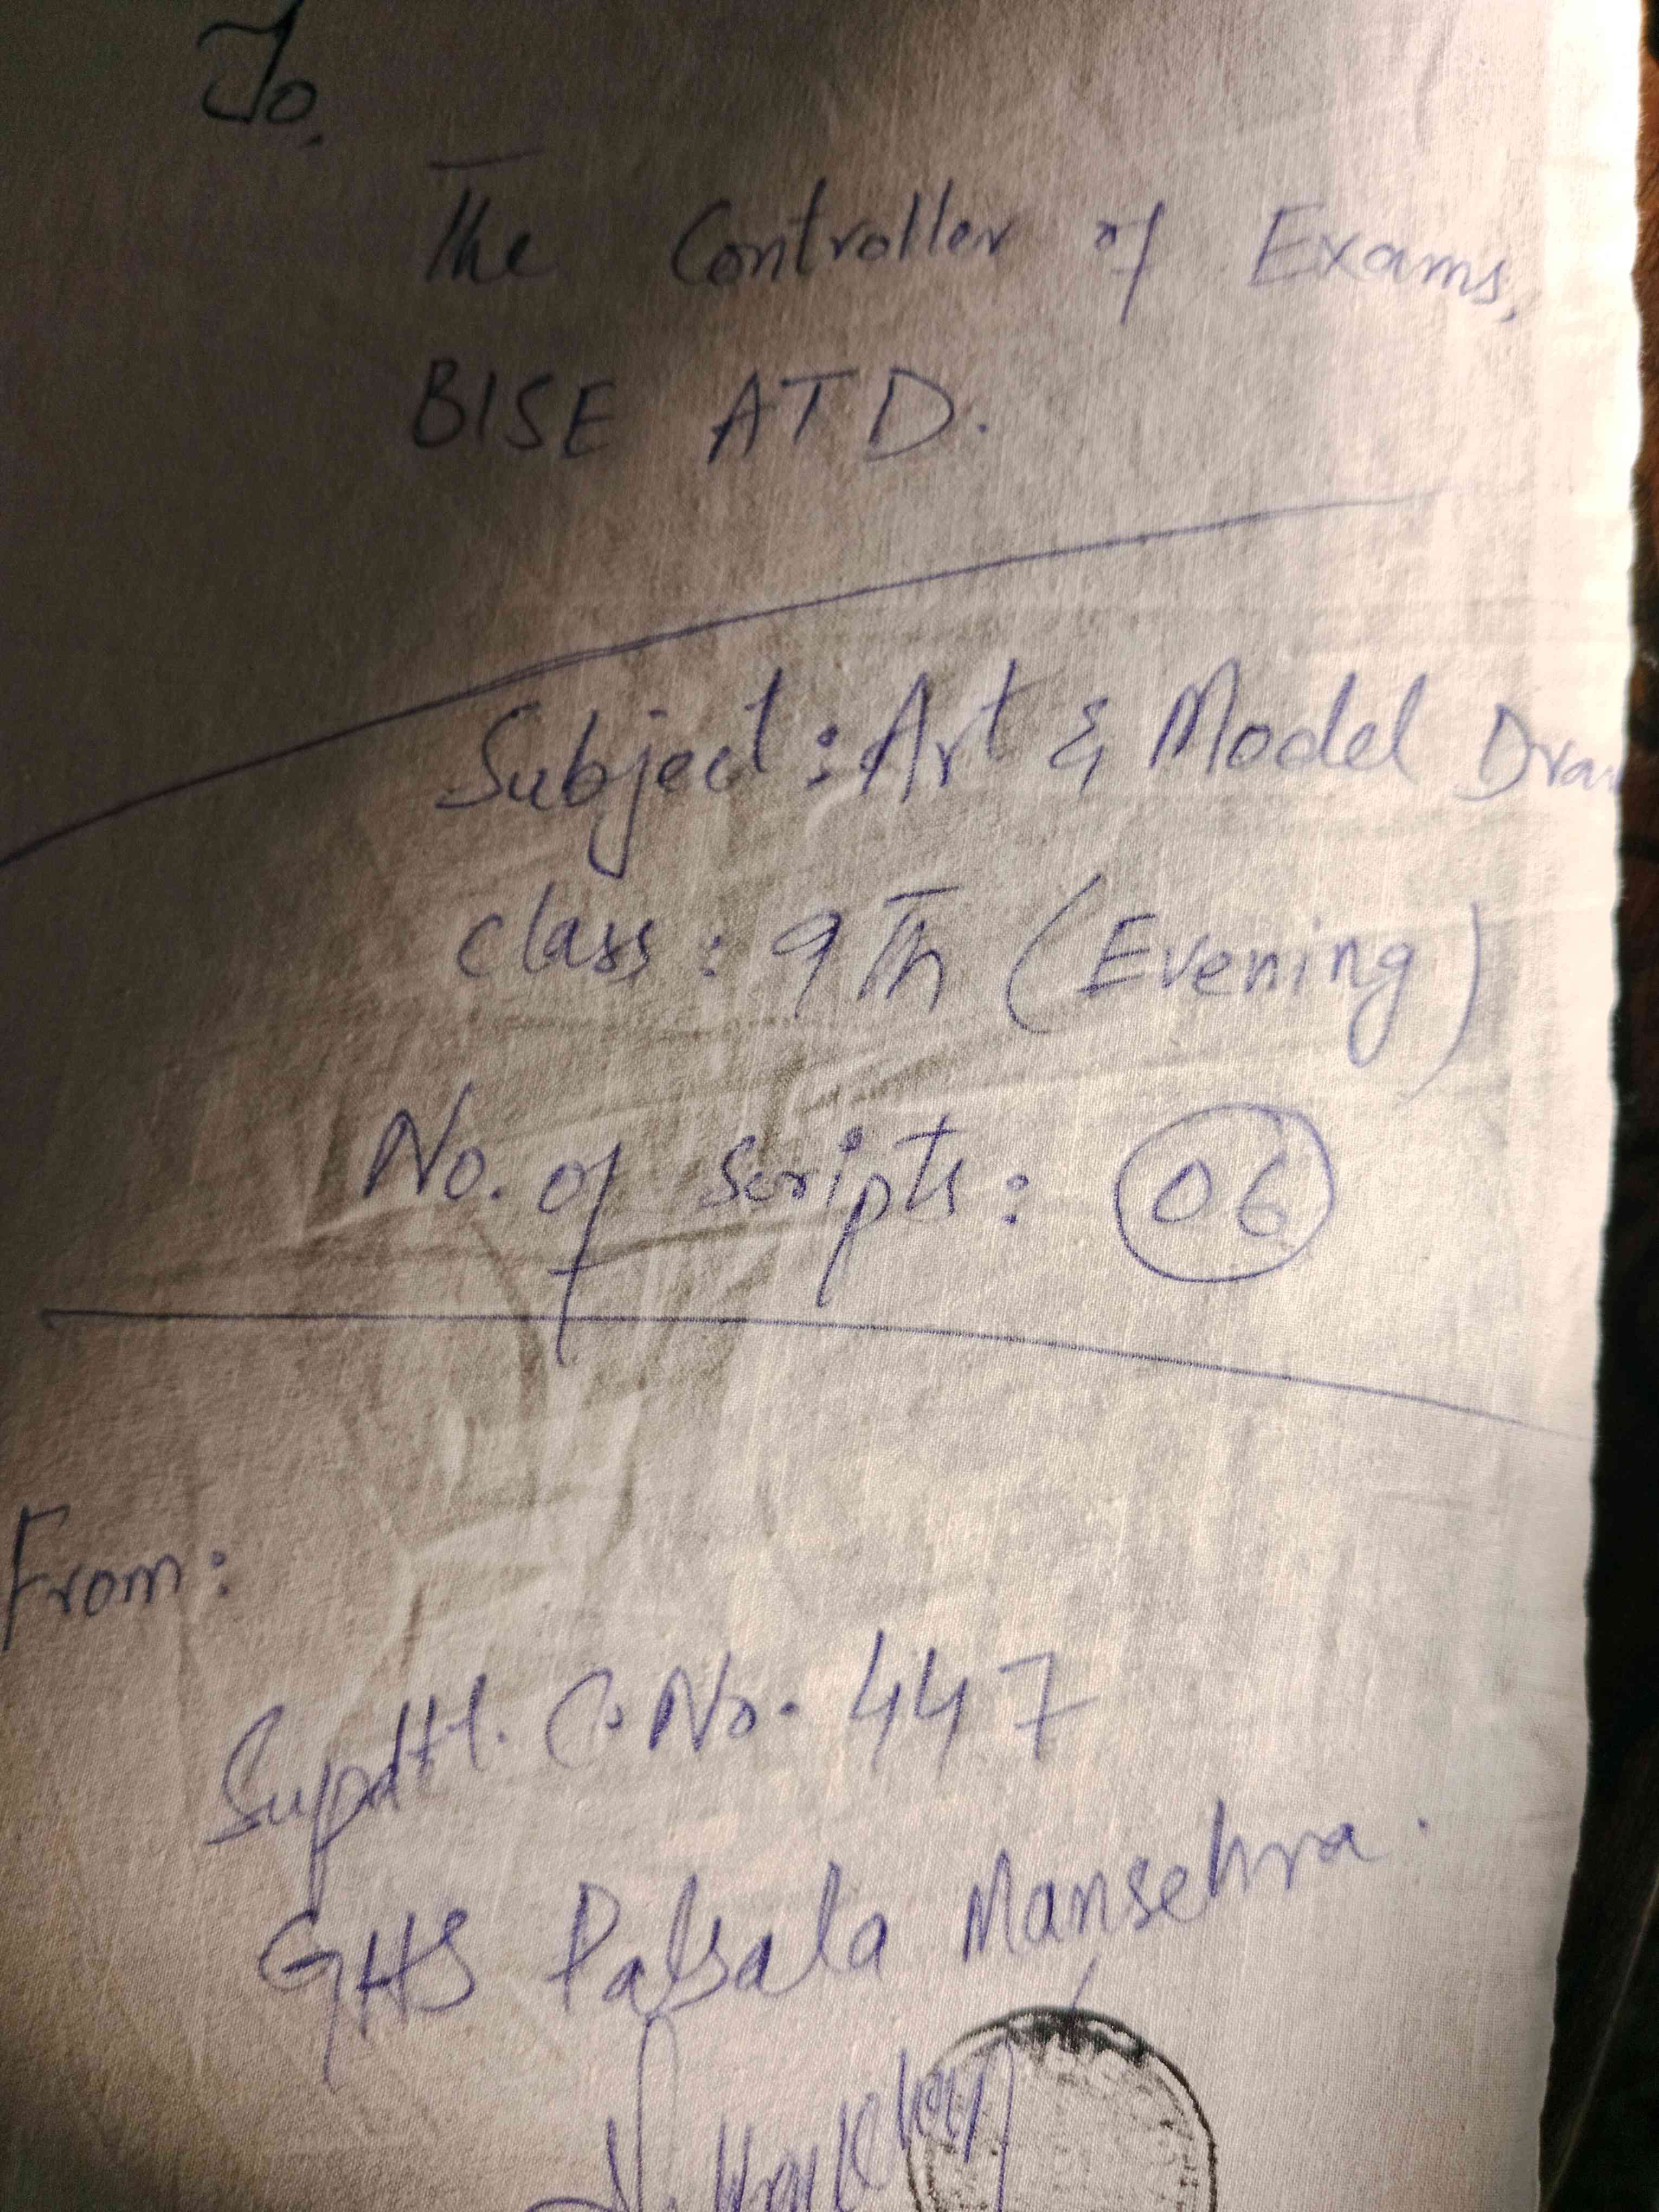 To,
The Controller of Exams,
BISE ATD.
Subject: Art & Model Dra
Class: 9Th (Evening)
No. of scripts: 06
From:
Supdtt. C.No. 447
GHS Mansehra.